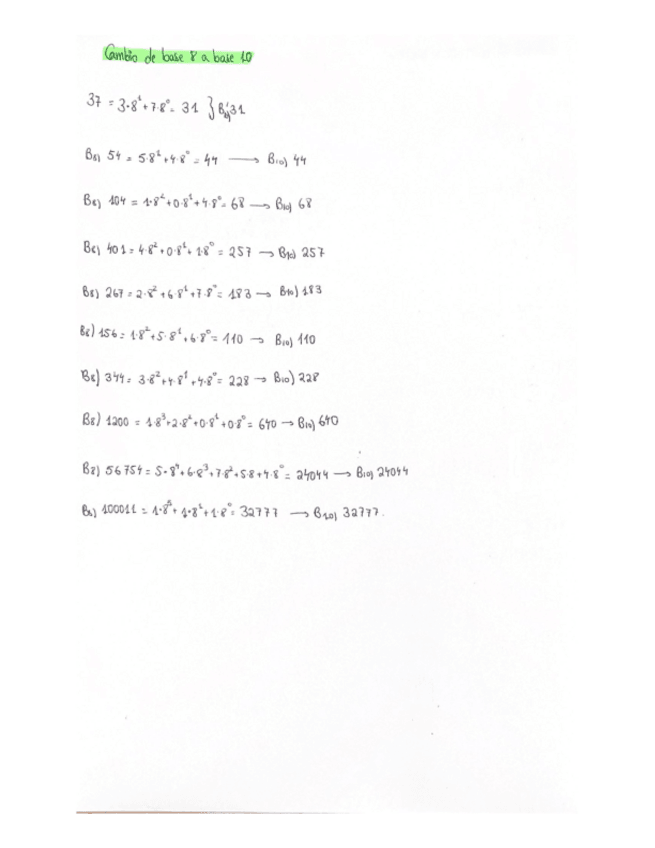 Cambio de base 8 a base 10
37 = 3·8¹+7·8⁰ = 31 } B₁₀) 31
B₈) 54 = 5·8¹+4·8⁰ = 44 → B₁₀) 44
B₈) 104 = 1·8²+0·8¹+4·8⁰ = 68 → B₁₀) 68
B₈) 401 = 4·8²+0·8¹+1·8⁰ = 257 → B₁₀) 257
B₈) 267 = 2·8²+6·8¹+7·8⁰ = 183 → B₁₀) 183
B₈) 156 = 1·8²+5·8¹+6·8⁰ = 110 → B₁₀) 110
B₈) 344 = 3·8²+4·8¹+4·8⁰ = 228 → B₁₀) 228
B8) 1200 = 1·8³+2·8²+0·8¹+0·8⁰ = 640 → B₁₀) 640
B8) 56754 = 5·8⁴+6·8³+7·8²+5·8+4·8⁰ = 24044 → B₁₀) 24044
B₈) 100011 = 1·8⁵+1·8¹+1·8⁰ = 32777 → B₁₀) 32777.